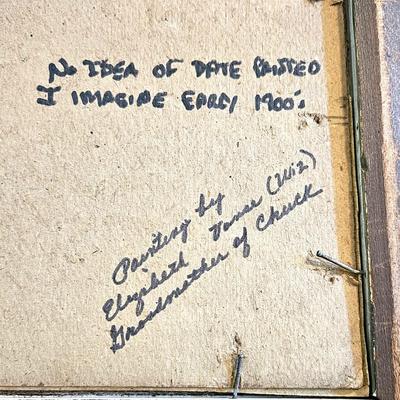 No IDEA OF DATE PAINTED
I IMAGINE EARLY 1900's
Painting by
Elizabeth Vance (Wiz)
Grandmother of Chuck